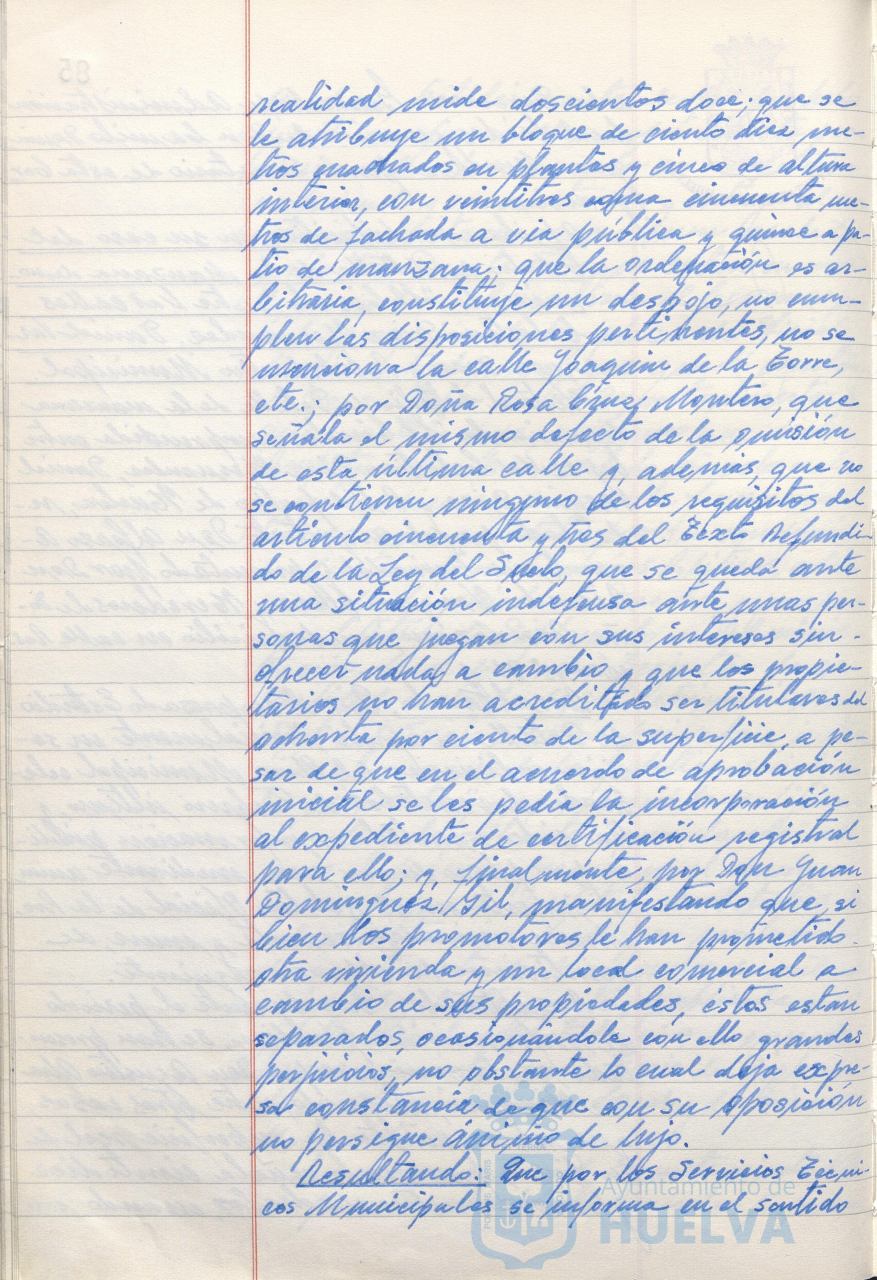 realidad mide doscientos doce; que se
le atribuye un bloque de ciento diez me-
tros cuadrados en plantas y cinco de altura
interior, con veintitres coma cincuenta me-
tros de fachada a via pública y quince a pa-
tio de manzana; que la ordenación es ar-
bitraria, constituye un despojo, no cum-
plen las disposiciones pertinentes, no se
menciona la calle Joaquin de la Torre,
etc.; por Doña Rosa Cruz Montero, que
señala el mismo defecto de la omisión
de esta última calle y, además, que no
se contienen ninguno de los requisitos del
articulo cincuenta y tres del Texto Refundi-
do de la Ley del Suelo, que se queda ante
una situación indefensa ante unas per-
sonas que juegan con sus intereses sin
ofrecer nada a cambio y que los propie-
tarios no han acreditado ser titulares del
ochenta por ciento de la superficie, a pe-
sar de que en el acuerdo de aprobación
inicial se les pedía la incorporación
al expediente de certificación registral
para ello; y, finalmente, por Don Juan
Dominguez Gil, manifestando que, si
bien los promotores le han prometido
otra vivienda y un local comercial a
cambio de sus propiedades, éstos estan
separados, ocasionándole con ello grandes
perjuicios, no obstante lo cual deja expre-
sa constancia de que con su oposición
no persigue ánimo de lujo.
Resultando: Que por los Servicios Técni-
cos Municipales se informa en el sentido
Ayuntamiento de
HUELVA